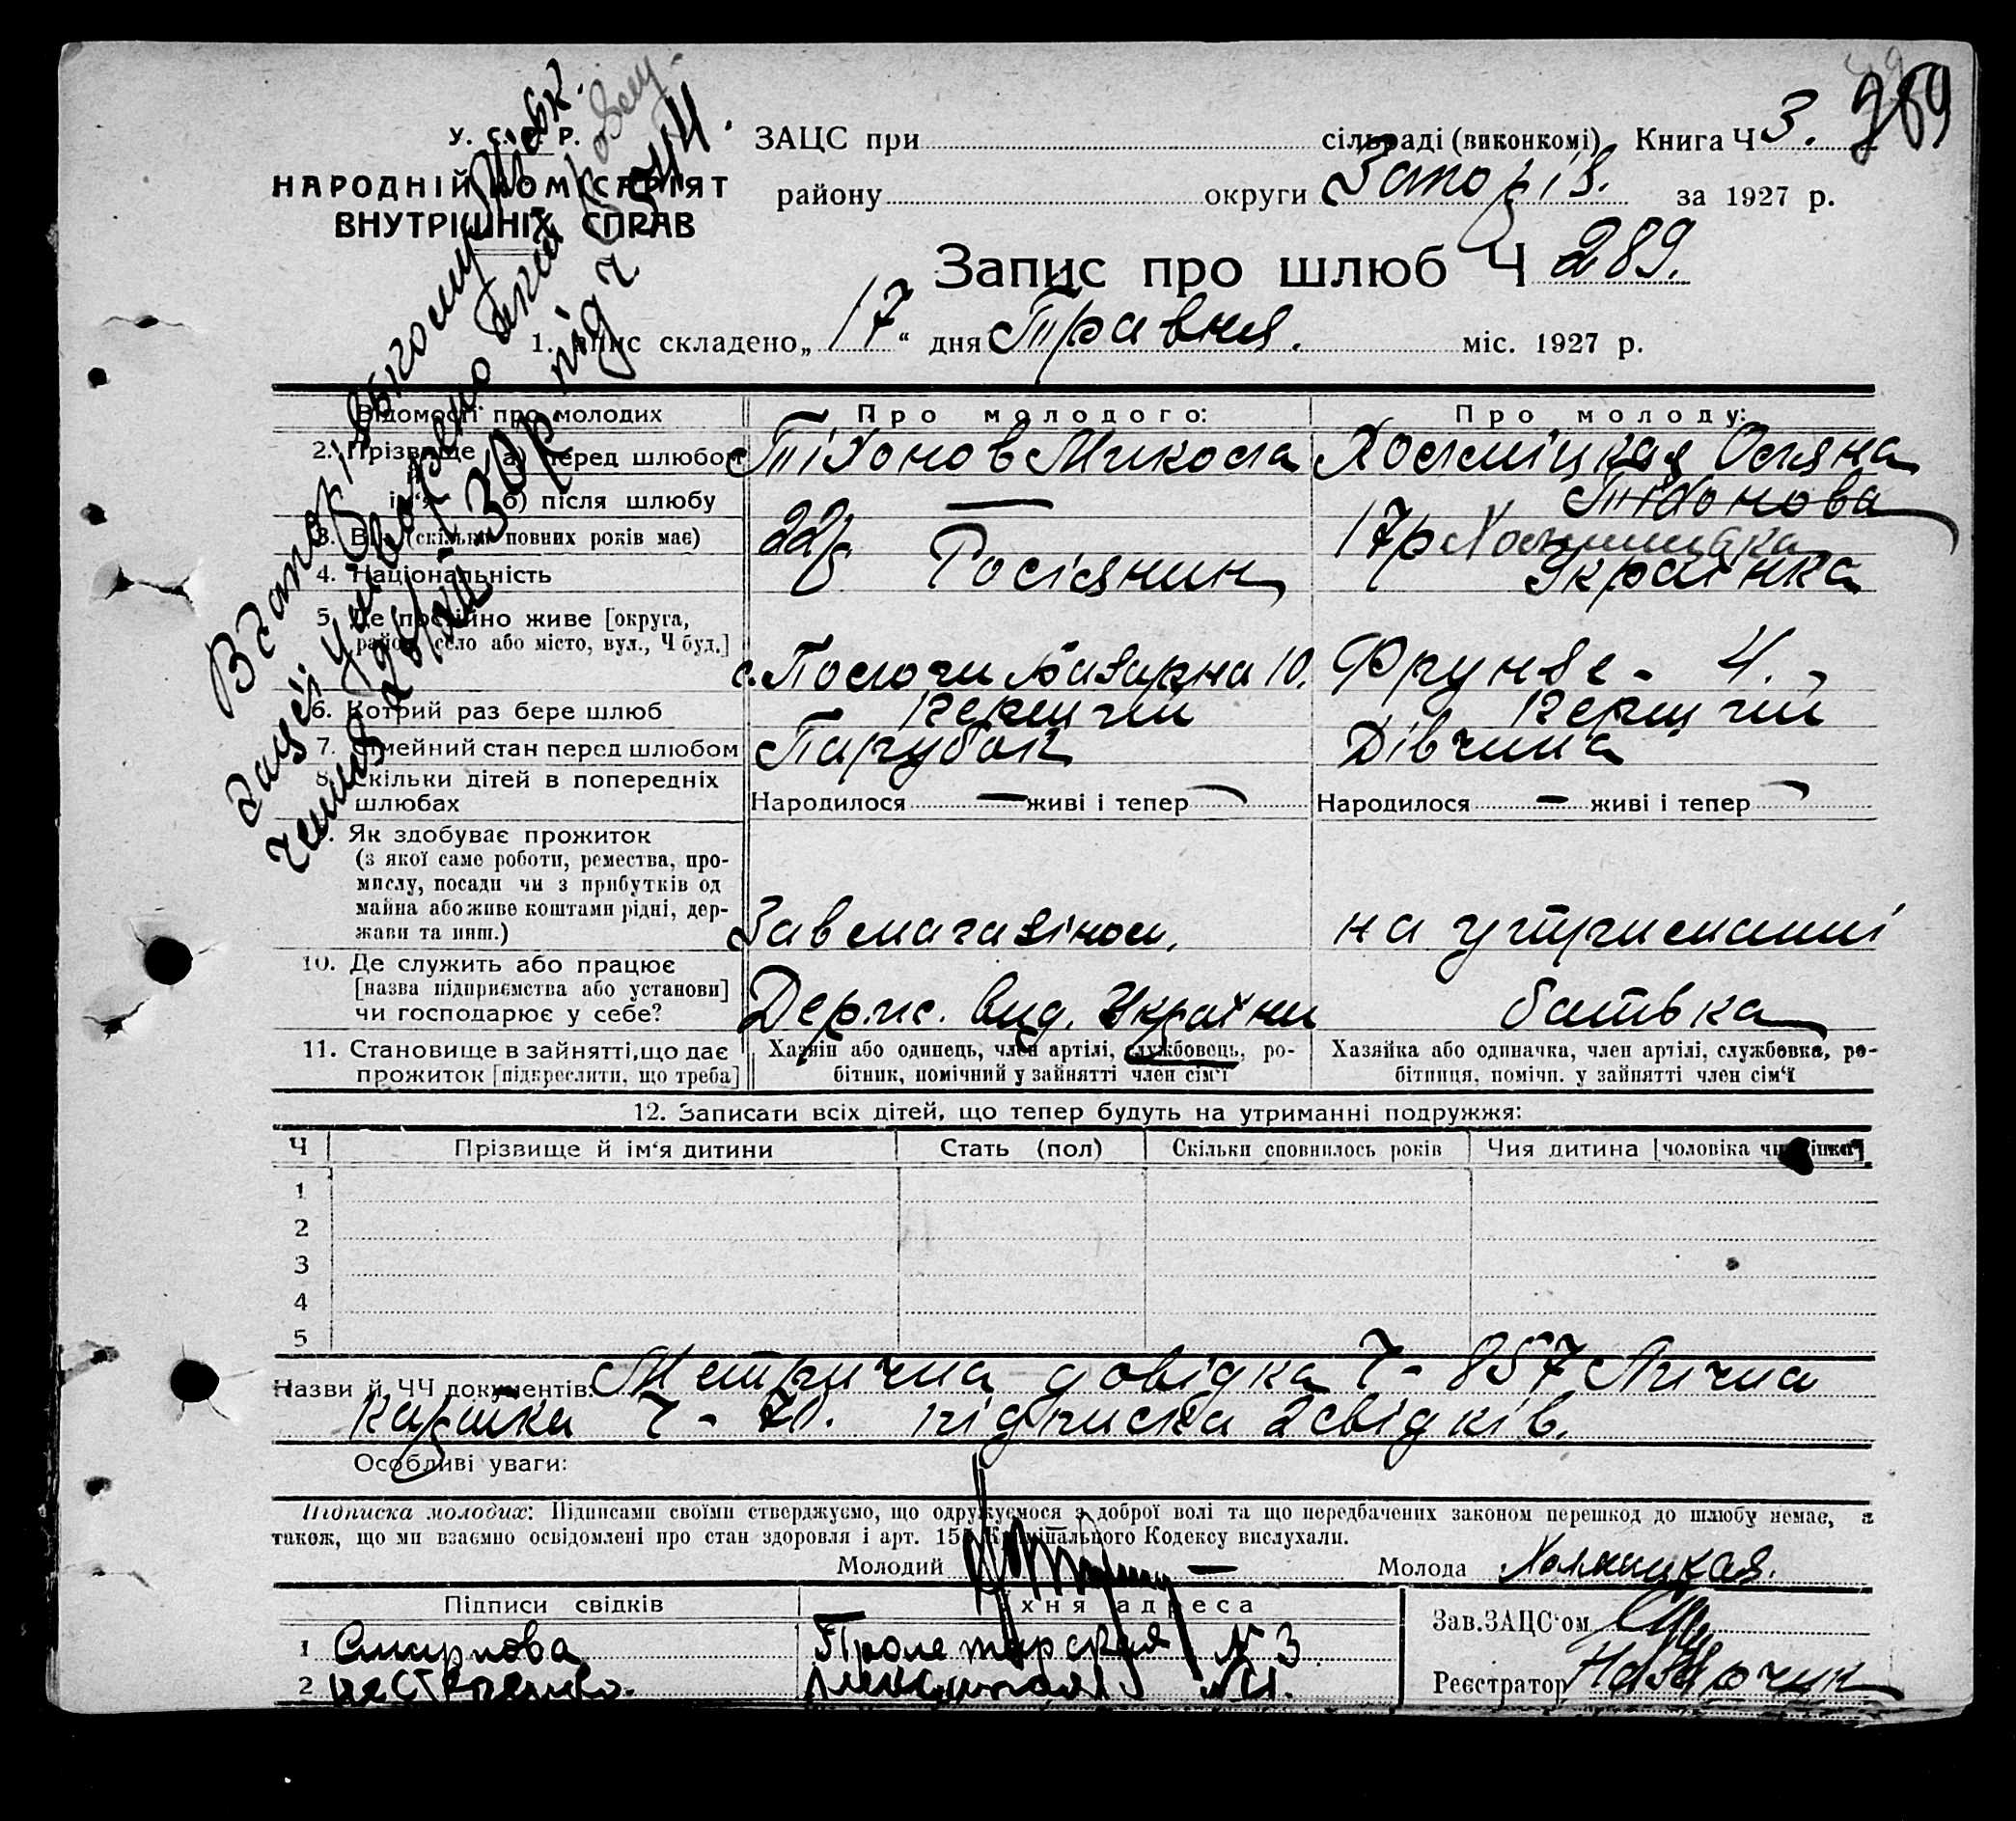 289
У. С. Р. Р.
НАРОДНІЙ КОМІСАРІЯТ
ВНУТРІШНІХ СПРАВ
ЗАЦС при сільраді (виконкомі) Книга Ч 3.
району округи Запоріз. за 1927 р.
Запис про шлюб Ч 289.
1. Запис складено „17“ дня Травня. міс. 1927 р.
Відомості про молодих Про молодого: Про молоду:
2. Прізвище а) перед шлюбом Тіхонов Микола
ім'я б) після шлюбу — Тіхонова
3. Вік (скільки повних років має) 22р 17р
4. Національність Росіянин Українка
5. Де постійно живе [округа,
район, село або місто, вул., Ч буд.] Базарна 10. Фрунзе - 4. -
6. Котрий раз бере шлюб перший перший
7. Сімейний стан перед шлюбом Парубок Дівчина
8. Скільки дітей в попередніх
шлюбах Народилося — живі і тепер Народилося — живі і тепер
9. Як здобуває прожиток
(з якої саме роботи, ремества, про-
мислу, посади чи з прибутків од
майна або живе коштами рідні, дер-
жави та инш.) Завмагазіном. на утриманні
10. Де служить або працює
[назва підприємства або установи]
чи господарює у себе? Держ. вид. України батька
11. Становище в зайнятті, що дає
прожиток [підкреслити, що треба]
Хазяін або одинець, член артілі, службовець, ро-
бітник, помічний у зайнятті член сім'ї
Хазяйка або одиначка, член артілі, службовка, ро-
бітниця, помічн. у зайнятті член сім'ї
12. Записати всіх дітей, що тепер будуть на утриманні подружжя:
Ч Прізвище й ім'я дитини Стать (пол) Скільки сповнилось років Чия дитина [чоловіка чи жінки]
1
2
3
4
5
Назви й ЧЧ документів: Метрична довідка Ч - 857 Лична
Картка Ч - 70. підписка 2 свідків.
Особливі уваги:
Підписка молодих: Підписами своїми стверджуємо, що одружуємося з доброї волі та що передбачених законом перешкод до шлюбу немає, а
також, що ми взаємно освідомлені про стан здоровля і арт. 155 Кримінального Кодексу вислухали.
Молодий Молода
Підписи свідків Їхня адреса
1 Смирнова Пролетарская № 3
2 Нестеренко.
Зав. ЗАЦС'ом
Реєстратор